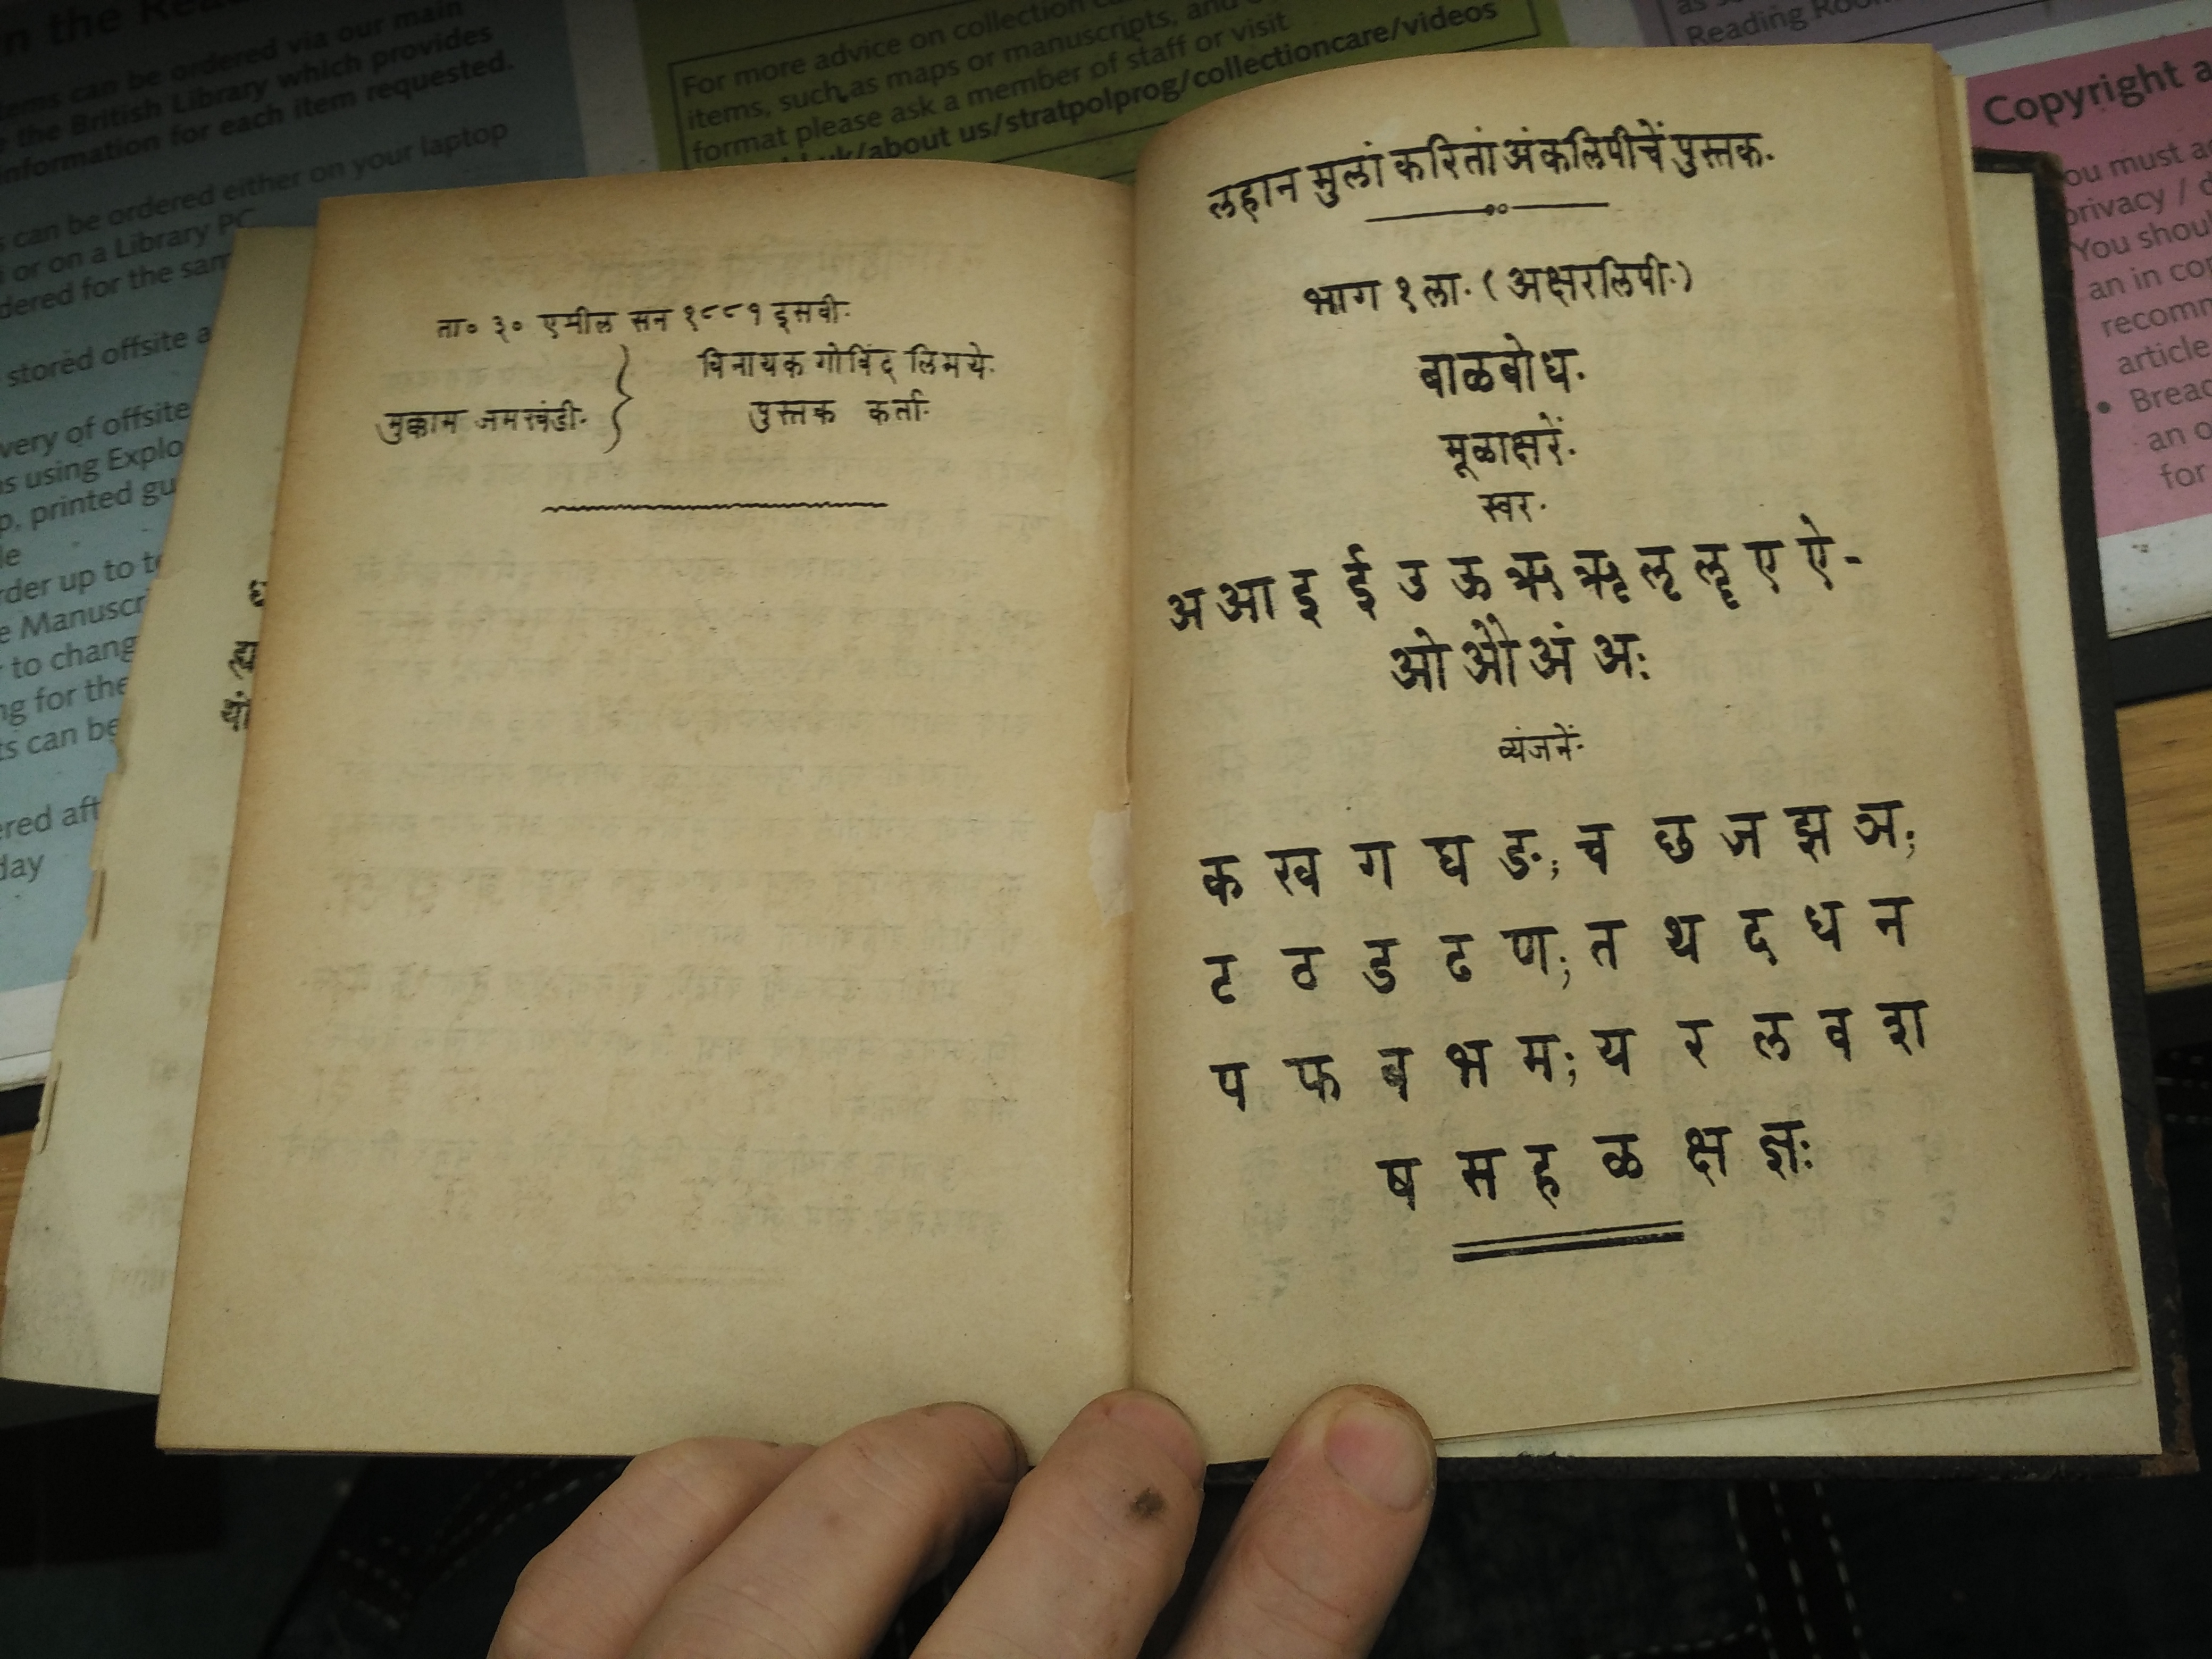 n the Rea
tems can be ordered via our main
e the British Library which provides
information for each item requested.
s can be ordered either on your laptop
or on a Library PC
dered for the sam
stored offsite a
very of offsite
s using Explo
p, printed gu
le
rder up to t
e Manuscri
to chang
ng for the
ts can be
ered aft
day
For more advice on collection
items, such as maps or manuscripts, and
format please ask a member of staff or visit
uk/about us/stratpolprog/collectioncare/videos
Reading Roo
Copyright a
ou must a
privacy / d
You shou
an in cor
recomm
article
• Breac
an o
for
ता॰ ३॰ एप्रील सन १८८१ इसवी.
विनायक गोविंद लिमये.
मुक्काम जमखंडी.
पुस्तक कर्ता.
लहान मुलां करितां अंकलिपीचें पुस्तक.
भाग १ ला. (अक्षरलिपी.)
बाळबोध.
मूळाक्षरें.
स्वर.
अ आ इ ई उ ऊ ऋ ॠ ऌ ॡ ए ऐ-
ओ औ अं अः
व्यंजनें.
क ख ग घ ङ; च छ ज झ ञ;
ट ठ ड ढ ण; त थ द ध न
प फ ब भ म; य र ल व श
ष स ह ळ क्ष ज्ञः